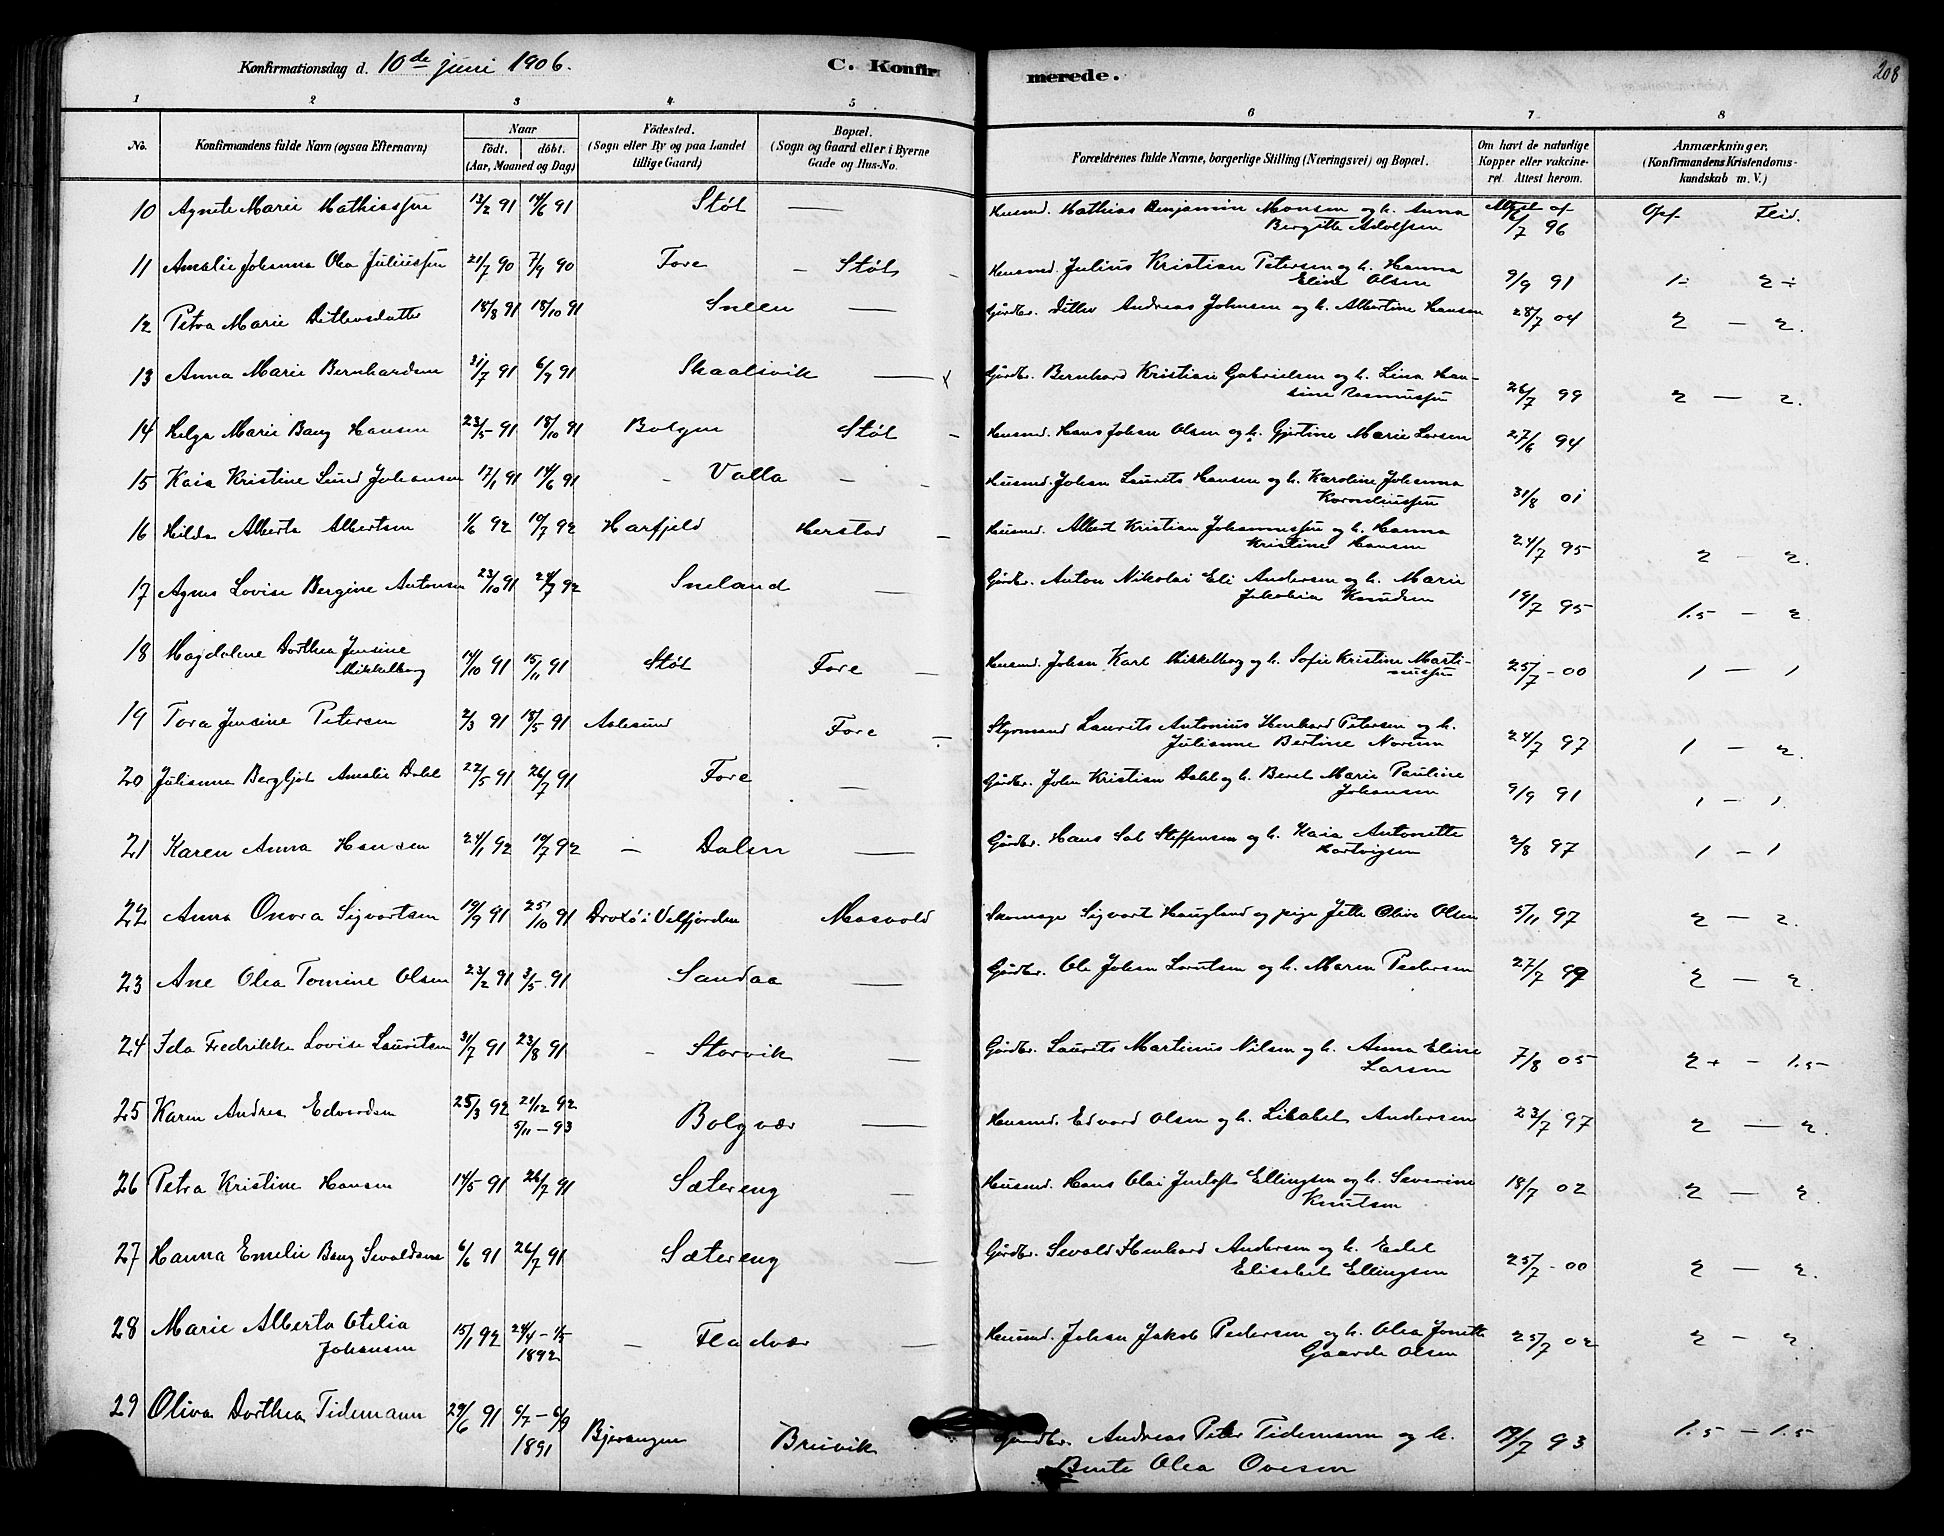 Konfirmationsdag d. 10de juni 1906.
C. Konfir
merede.
208
1 2 3 4 5 6 7 8
No.
Konfirmandens fulde Navn (ogsaa Efternavn)
Naar
födt. döbt.
(Aar, Maaned og Dag)
Födested.
(Sogn eller By og paa Landet
tillige Gaard)
Bopæl.
(Sogn og Gaard eller i Byerne
Gade og Hus-No.
Forældrenes fulde Navne, borgerlige Stilling (Næringsvei) og Bopæl.
Om havt de naturlige
Kopper eller vakcine-
ret. Attest herom.
Anmærkninger.
(Konfirmandens Kristendoms-
kundskab m. V.)
10 Agnete Marie Mathissen 13/2 91 14/6 91 Støt — Husmd. Mathias Benjamin Monsen og h. Anna
Bergitte Adolfsen 96 Opf Flid.
11 Amalie Johanna Olea Juliussen 21/7 90 7/9 90 Fore – Støt – Husmd. Julius Kristian Petersen og h. Hanna
Eline Olsen 9/9 91 1- 2÷
12 Petra Marie Ditlevsdatter 18/8 91 18/10 91 Sneen — Gårdbr. Ditlev Andreas Johnsen og h. Albertine Hansen 28/7 04 2 — 2.
13 Anna Marie Bernhardsen 31/7 91 6/9 91 Skaalsvik — x Gårdbr. Bernhard Kristian Gabrielsen og h. Lina Han-
sine Rasmussen 26/7 99 2 — 2.
14 Helga Marie Bang Hansen 23/5 91 18/10 91 Bolgen Støt – Husmd. Hans Johan Olsen og h. Gjertine Marie Larsen 27/6 94
15 Kaia Kristine Lund Johansen 17/1 91 14/6 91 – Valla – – Husmd. Johan Laurits Hansen og h. Karoline Johanna
Korneliussen 31/8 01
16 Hilda Alberta Albertsen 1/6 92 10/7 92 Harfjeld Herstad – Husmd. Albert Kristian Johannessen og h. Hanna
Kristine Hansen 24/7 95 2 – 2.
17 Agnes Lovise Bergine Antonsen 23/10 91 24/7 92 Sneland — Gårdbr. Anton Nikolai Eli Andersen og h. Marie
Jakobia Knudsen 19/7 95 1.5 – 2.
18 Magdalene Dorthea Jensine
Mikkelborg 14/10 91 15/11 91 Støt Fore — Husmd. Johan Karl Mikkelborg og h. Sofie Kristine Marti-
nussen 25/7 – 00 1 — 1
19 Tora Jensine Petersen 2/3 91 18/5 91 Aalesund Fore – Styrmand Laurits Antonius Henhard Petersen og h.
Julianne Bertine Norum 24/7 97 1 – 2.
20 Julianna Bergljot Amalie Dahl 22/5 91 26/7 91 Fore — Gårdbr. John Kristian Dahl og h. Beret Marie Pauline
Johansen 9/9 91 1 – 1.
21 Karen Anna Hansen 24/1 92 10/7 92 – Dalen — Gårdbr. Hans Sal Steffensen og h. Kaia Antonette
Hartvigsen 2/8 97 1 – 1
22 Anna Onora Sigvartsen 19/9 91 25/10 91 i Velfjorden Masvold Skomager Sigvart Haugland og pige Jette Olive Olsen 5/11 97 2 — 2.
23 Ane Olea Tomine Olsen 23/2 91 3/5 91 Sandaa — Gårdbr. Ole Johan Lorntsen og h. Maren Pedersen 27/7 99 2 — 2.
24 Ida Fredrikke Lovise Lauritsen 31/7 91 23/8 91 – Storvik — Gårdbr. Laurits Martinus Nilsen og h. Anna Eline
Larsen 7/8 05 2+ – 1.5
25 Karen Andrea Edvardsen 25/3 92 21/12 92
5/11 – 93 Bolgvær — Husmd. Edvard Olsen og h. Lisabet Andersen 23/7 97 2 — 2.
26 Petra Kristine Hansen 14/5 91 26/7 91 Sætereng — Husmd. Hans Olai Jentoft Ellingsen og h. Severine
Knutsen 18/7 02 2 — 2.
27 Hanna Emelie Bang Sevaldsen 6/6 91 26/7 91 Sætereng — Gårdbr. Sevald Henhard Andersen og h. Edel
Elisabet Ellingsen 25/7 – 00 2 — 2.
28 Marie Alberta Otelia
Johansen 15/1 92 24/4 – 1/5
1892 – Fladvær — Husmd. Johan Jakob Pedersen og h. Olea Jonette
Gaarde Olsen 25/7 02 2 – 2.
29 Oliva Dorthea Tidemann 29/6 91 6/7 – 6/9
1891 Bjerangen Breivik Gårdbr. Andreas Peter Tidemann og h.
Bente Olea Ovesen 19/7 93 1.5 – 1.5